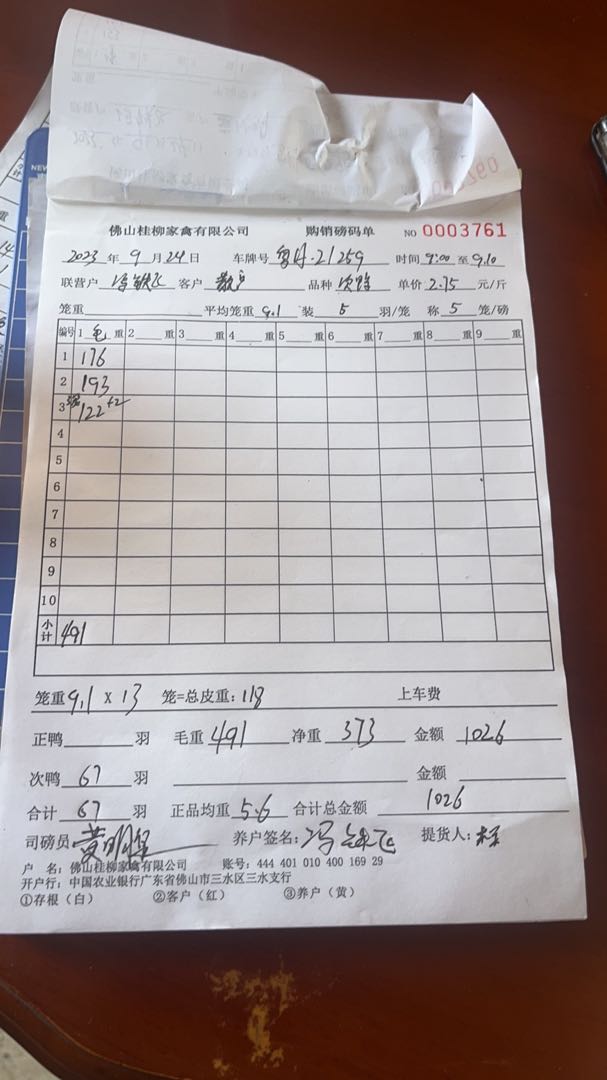 佛山桂柳家禽有限公司 购销磅码单 NO 0003761
2023 年 9 月 24 日 车牌号 粤H·21259 时间 9:00 至 9:10
联营户 冯铁飞 客户 散户 品种 次鸭 单价 2.75 元/斤
笼重 平均笼重 9.1 装 5 羽/笼 称 5 笼/磅
编号 1 毛 重 2 重 3 重 4 重 5 重 6 重 7 重 8 重 9 重
1 176
2 193
3 122 +2
4
5
6
7
8
9
10
小计 491
笼重 9.1 x 13 笼=总皮重: 118 上车费
正鸭 羽 毛重 491 净重 373 金额 1026
次鸭 67 羽 金额
合计 67 羽 正品均重 5.6 合计总金额 1026
司磅员: 养户签名: 冯铁飞 提货人:
户 名: 佛山桂柳家禽有限公司 账号: 444 401 010 400 169 29
开户行: 中国农业银行广东省佛山市三水区三水支行
①存根（白） ②客户（红） ③养户（黄）